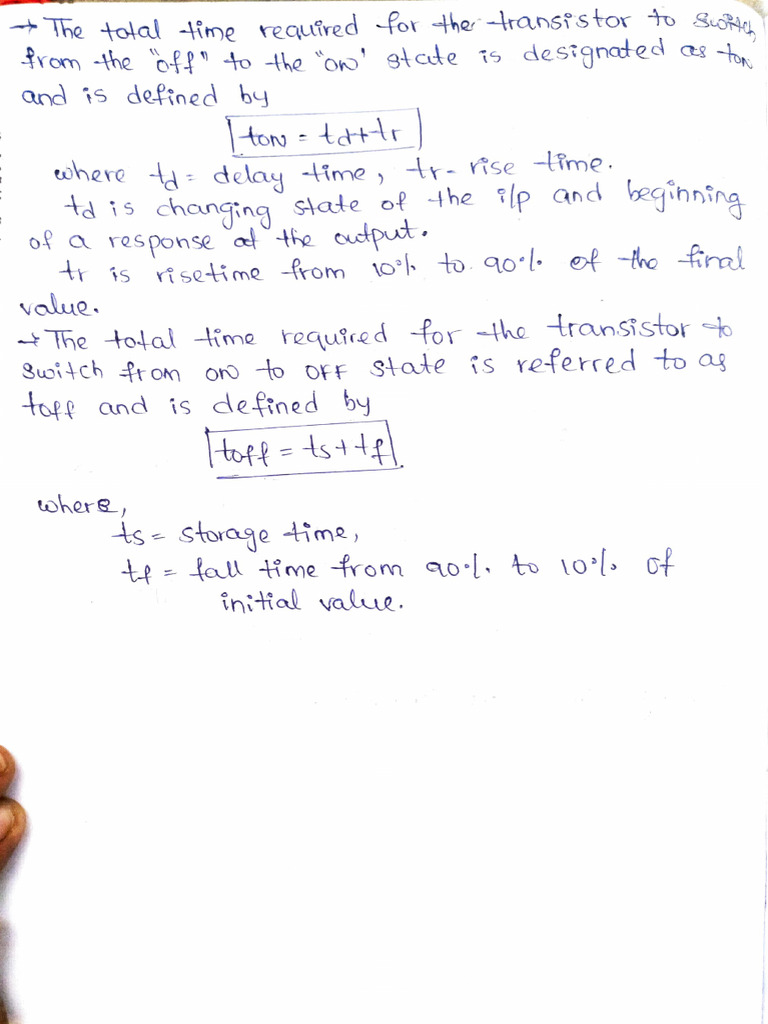 → The total time required for the transistor to switch
from the "off" to the "on" state is designated as ton
and is defined by
ton = td+tr
where td = delay time, tr - rise time.
td is changing state of the i/p and beginning
of a response at the output.
tr is risetime from 10% to 90% of the final
value.
→ The total time required for the transistor to
switch from on to OFF state is referred to as
toff and is defined by
toff = ts+tf
where,
ts = storage time,
tf = fall time from 90% to 10% of
initial value.